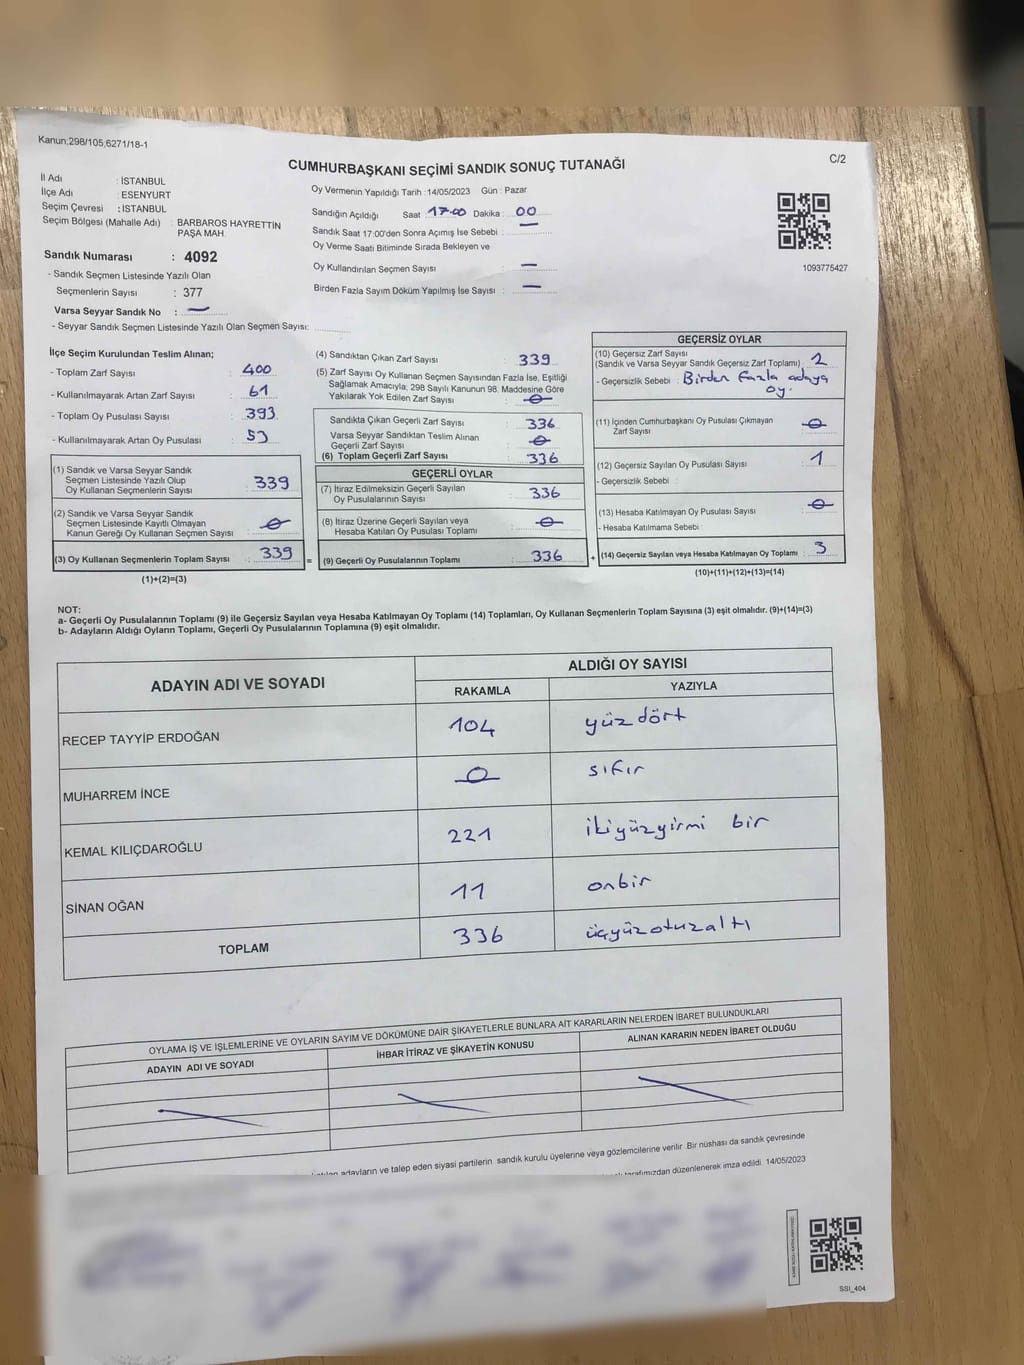 Kanun;298/105,6271/18-1
CUMHURBAŞKANI SEÇİMİ SANDIK SONUÇ TUTANAĞI
C/2
İl Adı : İSTANBUL
İlçe Adı : ESENYURT
Seçim Çevresi : İSTANBUL
Seçim Bölgesi (Mahalle Adı) : BARBAROS HAYRETTİN
PAŞA MAH.
Sandık Numarası : 4092
- Sandık Seçmen Listesinde Yazılı Olan
Seçmenlerin Sayısı : 377
Varsa Seyyar Sandık No : —
- Seyyar Sandık Seçmen Listesinde Yazılı Olan Seçmen Sayısı:
Oy Vermenin Yapıldığı Tarih :14/05/2023 Gün : Pazar
Sandığın Açıldığı Saat 17.00 Dakika : 00
Sandık Saat 17:00'den Sonra Açımış İse Sebebi : —
Oy Verme Saati Bitiminde Sırada Bekleyen ve
Oy Kullandırılan Seçmen Sayısı : —
Birden Fazla Sayım Döküm Yapılmış İse Sayısı : —
1093775427
İlçe Seçim Kurulundan Teslim Alınan;
- Toplam Zarf Sayısı : 400
- Kullanılmayarak Artan Zarf Sayısı : 61
- Toplam Oy Pusulası Sayısı : 393
- Kullanılmayarak Artan Oy Pusulası :
(1) Sandık ve Varsa Seyyar Sandık
Seçmen Listesinde Yazılı Olup
Oy Kullanan Seçmenlerin Sayısı : 339
(2) Sandık ve Varsa Seyyar Sandık
Seçmen Listesinde Kayıtlı Olmayan
Kanun Gereği Oy Kullanan Seçmen Sayısı : 0
(3) Oy Kullanan Seçmenlerin Toplam Sayısı : 339
(1)+(2)=(3)
(4) Sandıktan Çıkan Zarf Sayısı : 339
(5) Zarf Sayısı Oy Kullanan Seçmen Sayısından Fazla İse, Eşitliği
Sağlamak Amacıyla; 298 Sayılı Kanunun 98. Maddesine Göre
Yakılarak Yok Edilen Zarf Sayısı : 0
Sandıkta Çıkan Geçerli Zarf Sayısı : 336
Varsa Seyyar Sandıktan Teslim Alınan
Geçerli Zarf Sayısı : 0
(6) Toplam Geçerli Zarf Sayısı : 336
GEÇERLİ OYLAR
(7) İtiraz Edilmeksizin Geçerli Sayılan
Oy Pusulalarının Sayısı : 336
(8) İtiraz Üzerine Geçerli Sayılan veya
Hesaba Katılan Oy Pusulası Toplamı : 0
= (9) Geçerli Oy Pusulalarının Toplamı : 336
GEÇERSİZ OYLAR
(10) Geçersiz Zarf Sayısı
(Sandık ve Varsa Seyyar Sandık Geçersiz Zarf Toplamı) : 2
- Geçersizlik Sebebi : Birden fazla adaya
oy.
(11) İçinden Cumhurbaşkanı Oy Pusulası Çıkmayan
Zarf Sayısı : 0
(12) Geçersiz Sayılan Oy Pusulası Sayısı : 1
- Geçersizlik Sebebi :
(13) Hesaba Katılmayan Oy Pusulası Sayısı : 0
- Hesaba Katılmama Sebebi :
+ (14) Geçersiz Sayılan veya Hesaba Katılmayan Oy Toplamı : 3
(10)+(11)+(12)+(13)=(14)
NOT:
a- Geçerli Oy Pusulalarının Toplamı (9) ile Geçersiz Sayılan veya Hesaba Katılmayan Oy Toplamı (14) Toplamları, Oy Kullanan Seçmenlerin Toplam Sayısına (3) eşit olmalıdır. (9)+(14)=(3)
b- Adayların Aldığı Oyların Toplamı, Geçerli Oy Pusulalarının Toplamına (9) eşit olmalıdır.
ADAYIN ADI VE SOYADI
ALDIĞI OY SAYISI
RAKAMLA YAZIYLA
RECEP TAYYİP ERDOĞAN 104 yüz dört
MUHARREM İNCE 0 sıfır
KEMAL KILIÇDAROĞLU 221 ikiyüzyirmi bir
SİNAN OĞAN 11 onbir
TOPLAM 336 üçyüzotuzaltı
OYLAMA İŞ VE İŞLEMLERİNE VE OYLARIN SAYIM VE DÖKÜMÜNE DAİR ŞİKAYETLERLE BUNLARA AİT KARARLARIN NELERDEN İBARET BULUNDUKLARI
ADAYIN ADI VE SOYADI İHBAR İTİRAZ VE ŞİKAYETİN KONUSU ALINAN KARARIN NEDEN İBARET OLDUĞU
adayların ve talep eden siyasi partilerin sandık kurulu üyelerine veya gözlemcilerine verilir. Bir nüshası da sandık çevresinde
tarafımızdan düzenlenerek imza edildi. 14/05/2023
SSI_404